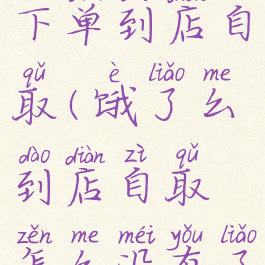 下单到店自
qǔ è liǎo me
取(饿了么
dào diàn zì qǔ
到店自取
zěn me méi yǒu liǎo
怎么没有了